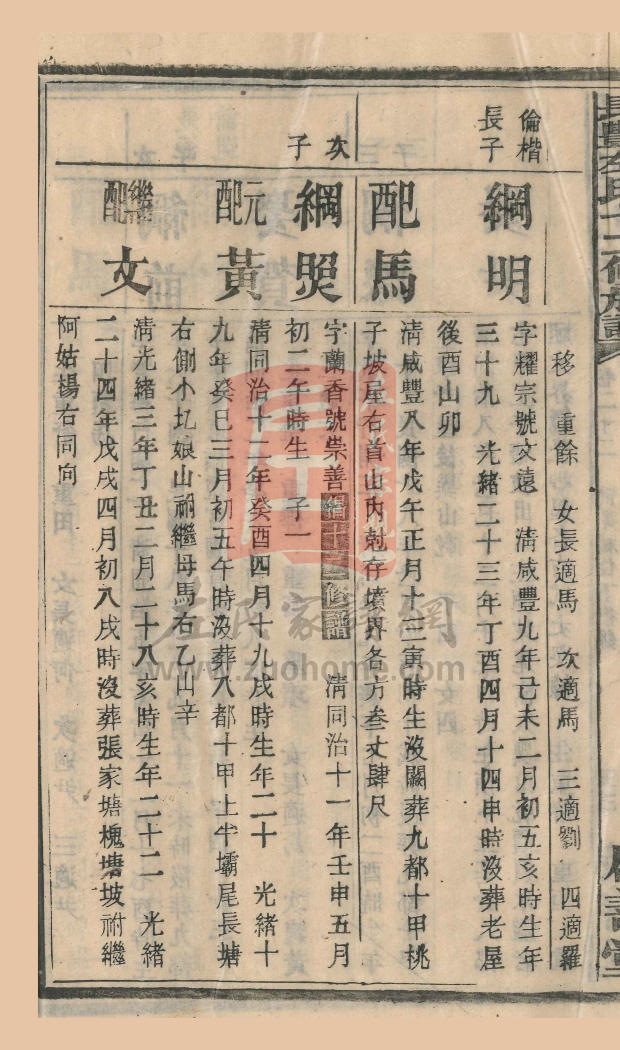 移　重餘　女長適馬　次適馬　三適劉　四適羅
倫楷
長子
綱明
字耀宗號文遠　清咸豐九年己未二月初五亥時生年
三十九　光緒二十三年丁酉四月十四申時沒葬老屋
後酉山卯
配馬
清咸豐八年戊午正月十三寅時生沒闕葬九都十甲桃
子坡屋右首山內尅存墳界各方叁丈肆尺
次
子
綱照
字蘭香號崇善　續修譜　清同治十一年壬申五月
初二午時生　子一
元配黃
清同治十二年癸酉四月十九戌時生年二十　光緒十
九年癸巳三月初五午時沒葬八都十甲上牛壩尾長塘
右側小圠娘山祔繼母馬右乙山辛
繼配文
清光緒三年丁丑二月二十八亥時生年二十二　光緒
二十四年戊戌四月初八戌時沒葬張家塘槐塘坡祔繼
阿姑楊右同向
左氏家譜網
www.zuohome.com